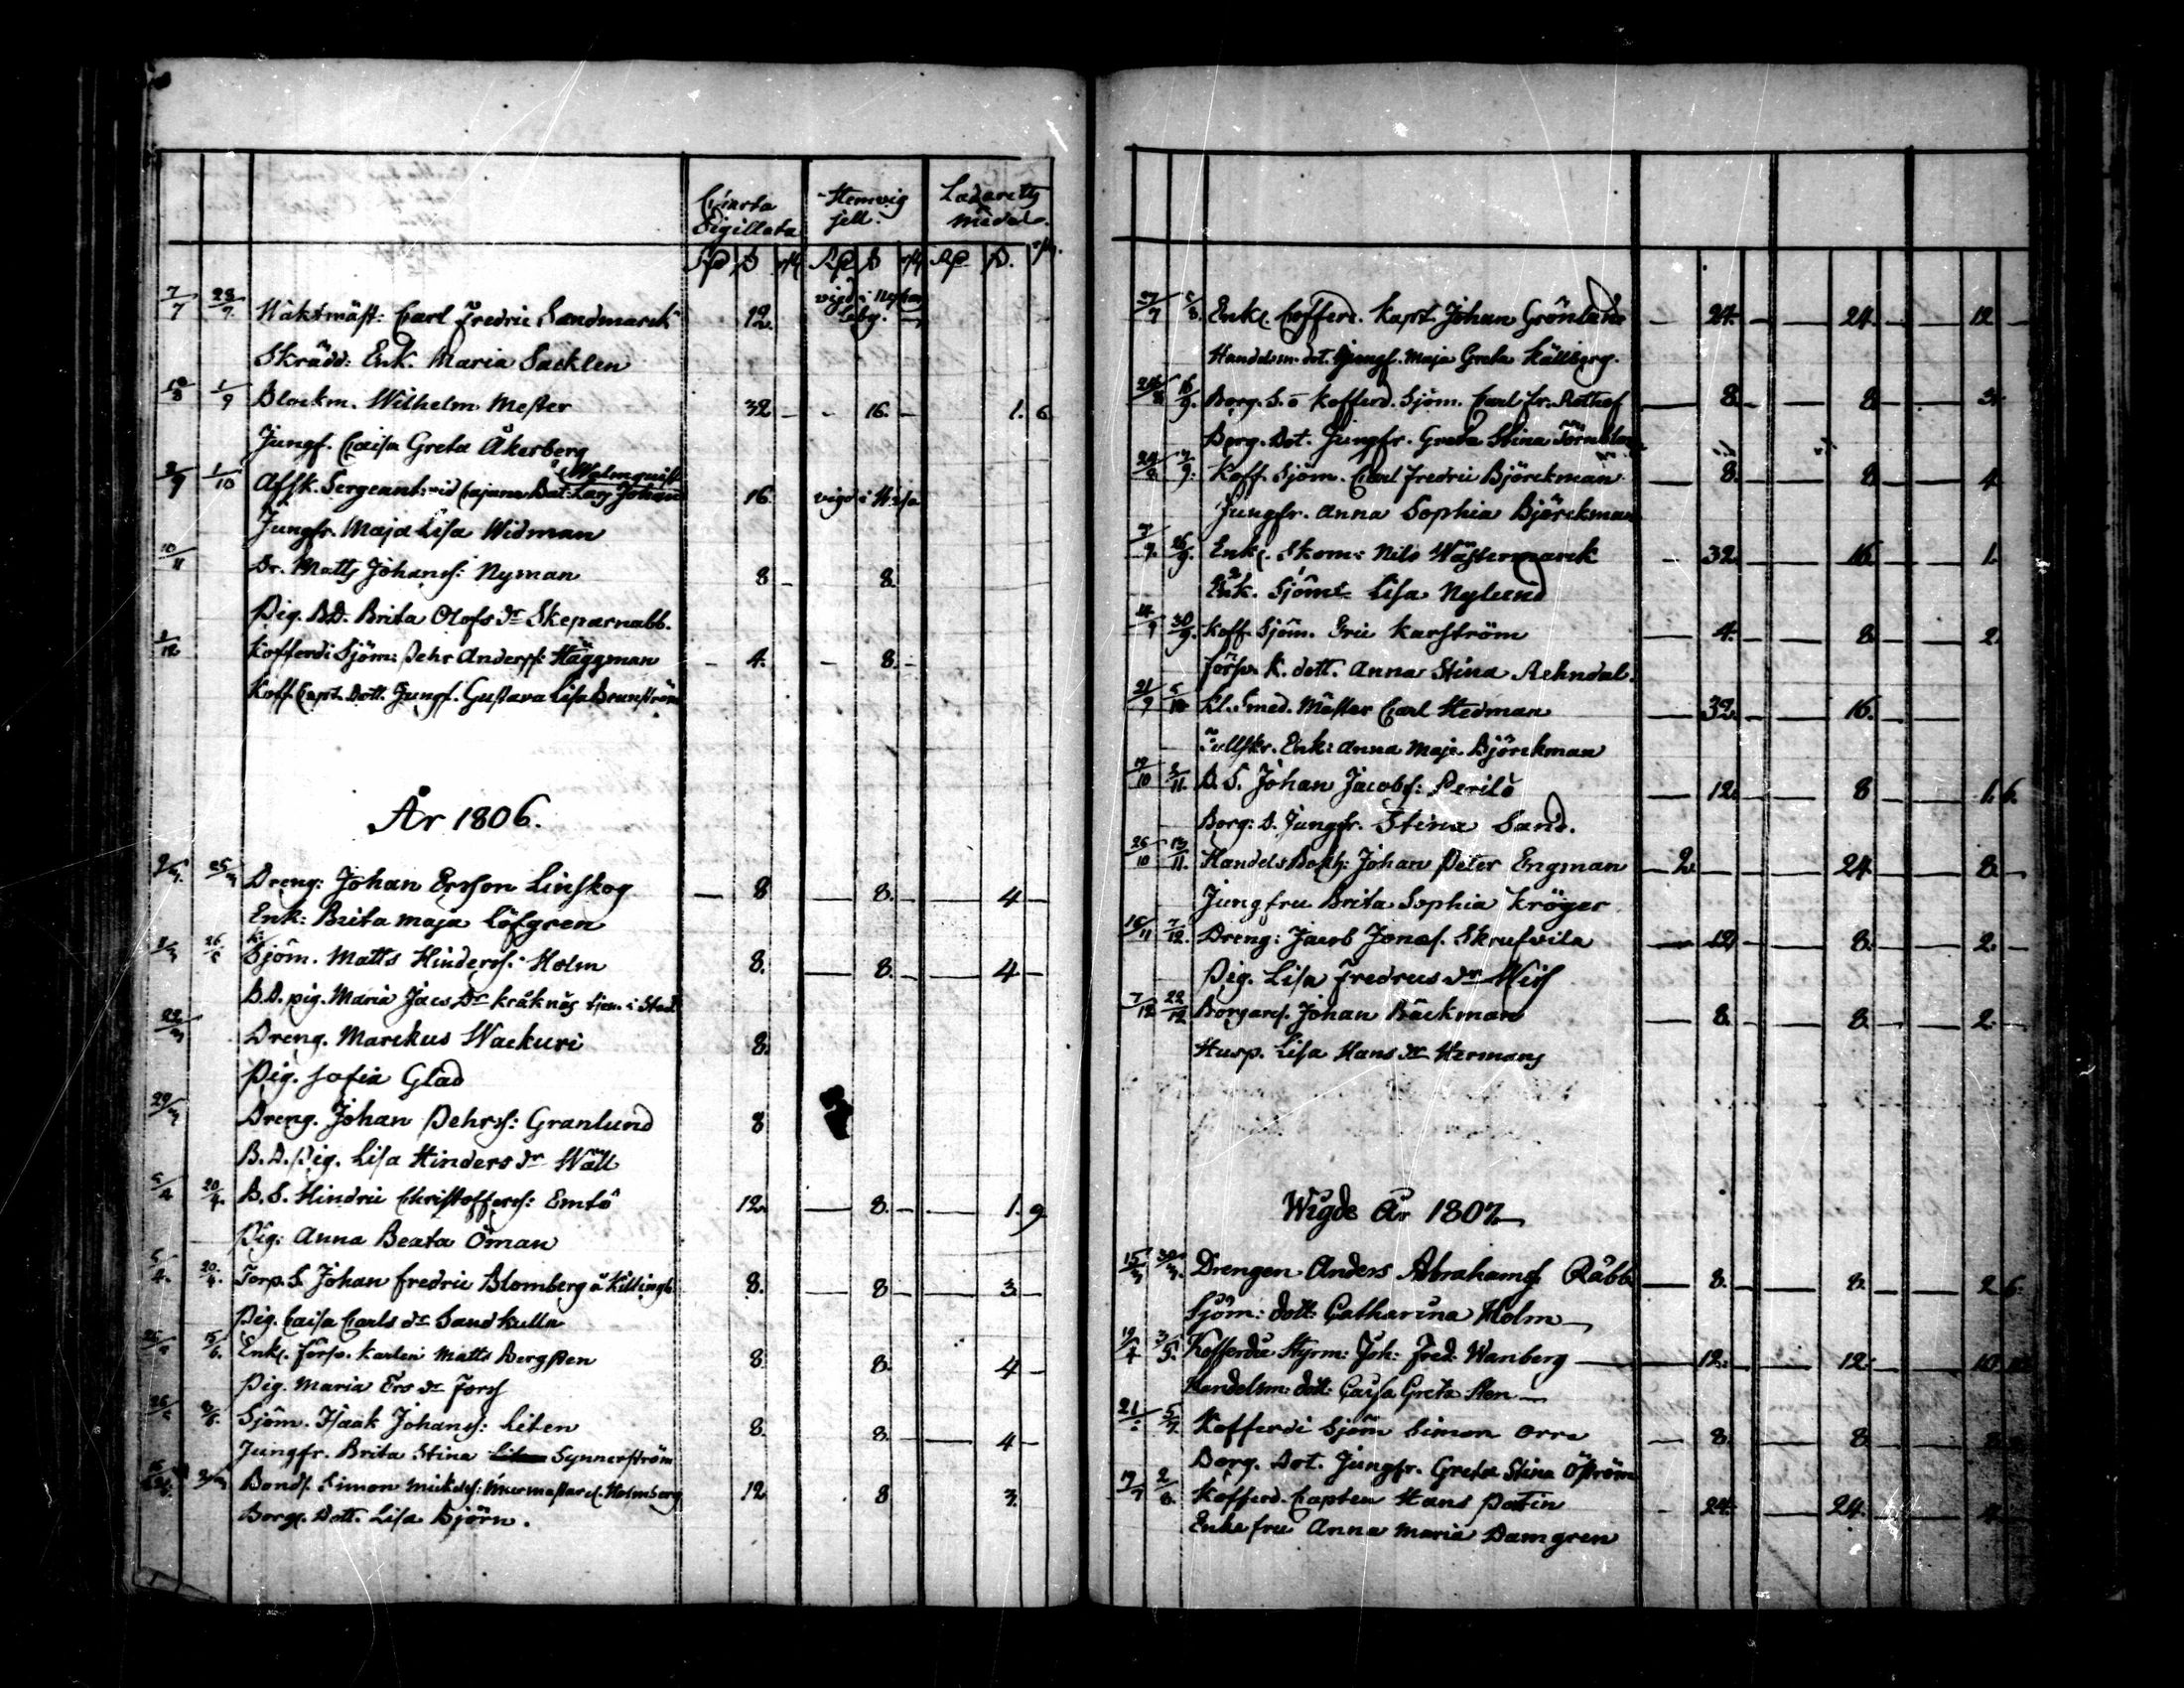 Charta Sigillata | Hemvig sell. | Lazaretts medel.
Rd ß rst Rd ß rst Rd ß rst
7/7 28/7 Waktmäst: Carl Fredric Sandmarck 12. vigd i
Skrädd: Enk. Maria Sacklen
18/8 1/9 Blockm. Wilhelm Mester 32 - - 16. - 1. 6
Jungf. Caisa Greta Åkerberg
1/10 Affsk. Sergeant vid Cajana Bat: Lars Johan Malmquist 16. vigd i Wasa
Jungfr. Maja Lisa Widman
10/11 Dr. Matts Johanss: Nyman 8 - 8.
Pig. B.D. Brita Olofs dr Skeparnabb.
1/12 Kofferdi Sjöm: Pehr Anderss: Häggman - 4. - 8. -
Koff. Capt. Dott. Jungf. Gustava Lisa Brunström
År 1806.
2/3 25/3 Dreng: Johan Ersson Linskog — 8 — 8. — 4 —
Enk: Brita Maja Löfgren
K: Sjöm. Matts Hinderss: Holm 8. — 8. — 4 —
B.D. pig. Maria Jacs Dr Kråknäs tjen. i Stad
22/3 Dreng. Marckus Wackuri 8.
Pig. Sofia Glad
29/3 Dreng. Johan Pehrss: Granlund 8
B.D. Pig. Lisa Hinders dr Wäll
5/4 20/4. B.S. Hindric Christofferss: Emlö 12. — 8. — 1. 9
Pig: Anna Beata Öman
5/4. 20/4. Torp. S. Johan Fredric Blomberg å Killingh. 8. — 8 — 3 —
Pig. Caisa Carls dr Sandkulla
15/6. Enkl. förso. karlen Matts Bergsten 8. 8. 4 —
Pig. Maria Ers dr Forss
Sjöm. Isaak Johanss: Liten 8. 8. — 4 —
Jungfr. Brita Stina Synnerström
Bonds. Simon Mickels: Holmberg 12 . 8 3.
Borgs. Dott. Lisa Björn.
27/7 2/8. Enkl. Cofferd. Kapt. Johan Grönlund — 24. — 24. — 12 —
Handelsm. dot. Jungf. Maja Greta Källberg.
24/8 16/9. Borg. S. o Kofferd. Sjöm. Carl Fr. Rothof — 8. — 8. — 3.
Borg. Dot. Jungfr. Greta Stina
24/8 7/9. Koff. Sjöm. Carl Fredric Björckman — 8. — 8 — 4
Jungfr. Anna Sophia Björckman
7/9. 26/9. Enkl. Skom: Nils Wästermarck — 32. — 16. — 1.
Enk. Sjömn Lisa Nylund
14/9 30/9. Koff. Sjöm. Eric Karström — 4. — 8. — 2.
Försv. K. dott. Anna Stina Rehndal.
21/9 5/10 Kl. Smed. Mäster Carl Hedman — 32. — 16. —
Tullskr. Enk: Anna Maja Björckman
19/10 2/11. B.S. Johan Jacobs: Perilö — 12. — 8 — 1. 6.
Borg: D. Jungfr. Stina Sand.
26/10 13/11. Handels Bokh: Johan Peter Engman — 2. — 24 — 8. —
Jungfru Brita Sophia Kröger
16/11 7/12. Dreng: Jacob Jonas. Skrufvila — 12 — 8. — 2. —
Pig. Lisa Fredricus dr Wiss
7/12 22/12 Borgares. Johan Bäckman — 8. — 8. — 2. —
Husp. Lisa Hans dr Hermans
Wigde År 1807.—
15/3 30/3. Drengen Anders Abrahams Råbb — 8. — 8. — 2 6.
Sjöm: dott: Catharina Holm —
19/4 3/5. Kofferdie Styrm: Joh: Fred: Wanberg — 12. — 12. —
Handelsm: dott: Caisa Greta Sten —
Kofferdi Sjöm Simon Orre — 8. — 8. —
Borg. Dot. Jungfr. Greta Stina Öström
19/7 2/8. Kofferd. Capten Hans Patin — 24. — 24. — 4.
Enkefru Anna Maria Damgren